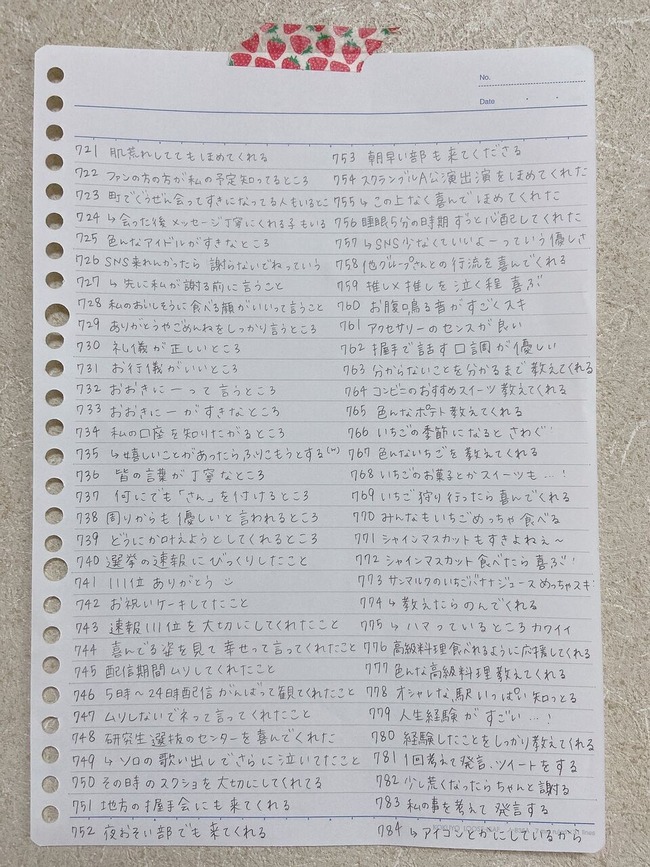 No.
Date
721 肌荒れしててもほめてくれる
722 ファンの方の方が私の予定知ってるところ
723 町でぐうぜん会ってすきになってる人もいるとこ
724 ↳会った後メッセージ丁寧にくれる子もいる
725 色んなアイドルがすきなところ
726 SNS来れんかったら謝らないでねっていう
727 ↳先に私が謝る前に言うこと
728 私のおいしそうに食べる顔がいいって言うこと
729 ありがとうやごめんねをしっかり言うところ
730 礼儀が正しいところ
731 お行儀がいいところ
732 おおきにーって言うところ
733 おおきにーがすきなところ
734 私の口座を知りたがるところ
735 ↳嬉しいことがあったらふりこもうとする(w)
736 皆の言葉が丁寧なところ
737 何にでも「さん」を付けるところ
738 周りからも優しいと言われるところ
739 どうにか叶えようとしてくれるところ
740 選挙の速報にびっくりしたこと
741 111位ありがとう
742 お祝いケーキしてたこと
743 速報111位を大切にしてくれたこと
744 喜んでる姿を見て幸せって言ってくれたこと
745 配信期間ムリしてくれたこと
746 5時〜24時配信がんばって観てくれたこと
747 ムリしないでネって言ってくれたこと
748 研究生選抜のセンターを喜んでくれた
749 ↳ソロの歌い出しでさらに泣いてたこと
750 その時のスクショを大切にしてくれてる
751 地方の握手会にも来てくれる
752 夜おそい部でも来てくれる
753 朝早い部も来てくださる
754 スクランブルA公演出演をほめてくれた
755 ↳この上なく喜んでほめてくれた
756 睡眠5分の時期ずっと心配してくれた
757 ↳SNS少なくていいよーっていう優しさ
758 他グループさんとの行流を喜んでくれる
759 推し×推しを泣く程喜ぶ
760 お腹鳴る音がすごくスキ
761 アクセサリーのセンスが良い
762 握手で話す口調が優しい
763 分からないことを分かるまで教えてくれる
764 コンビニのおすすめスイーツ教えてくれる
765 色んなポテト教えてくれる
766 いちごの季節になるとさわぐ!
767 色んないちごを教えてくれる
768 いちごのお菓子とかスイーツも…!
769 いちご狩り行ったら喜んでくれる
770 みんなもいちごめっちゃ食べる
771 シャインマスカットもすきよねぇ〜
772 シャインマスカット食べたら喜ぶ!
773 サンマルクのいちごバナナジュースめっちゃスキ
774 ↳教えたらのんでくれる
775 ↳ハマっているところカワイイ
776 高級料理食べれるように応援してくれる
777 色んな高級料理教えてくれる
778 オシャレな駅いっぱい知っとる
779 人生経験がすごい…!
780 経験したことをしっかり教えてくれる
781 1回考えて発言、ツイートをする
782 少し荒くなったらちゃんと謝る
783 私の事を考えて発言する
784 ↳アイコンとかにしているから